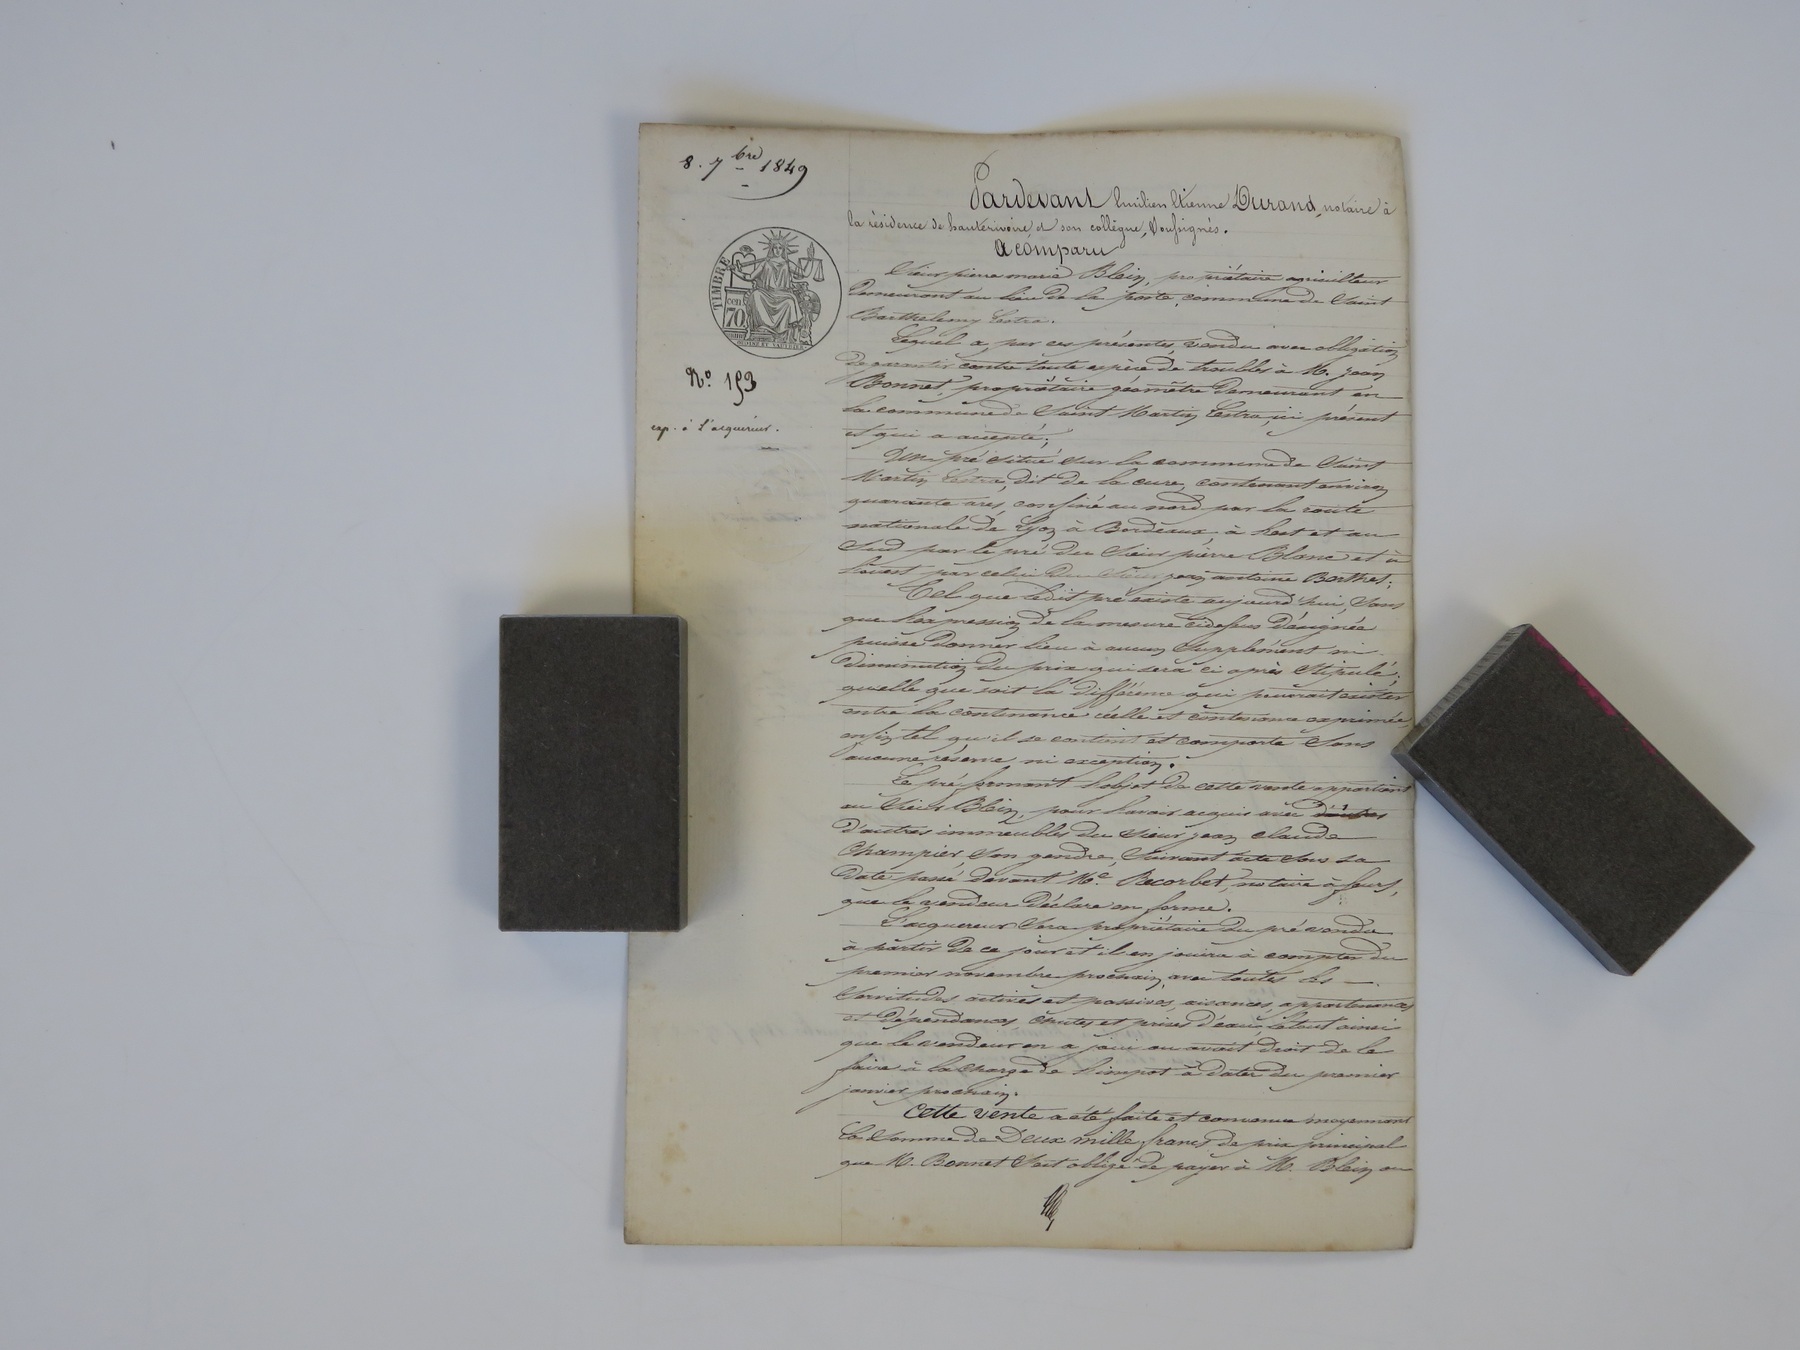 8. 7bre 1849
TIMBRE
cen
70
No 193
exp. à l'acquéreur.
Pardevant Emilien Etienne Durand, notaire à
la résidence de hauterivoire, et son collègue, Soussignés.
A comparu
Sieur pierre marie Blein, propriétaire agriculteur
Demeurant au lieu de la porte, commune de Saint
Barthelemy Lestra.
Lequel a, par ces présentes, vendu avec obligation
de garantir contre toute espèce de troubles à M. Jean
Bonnet, propriétaire géomêtre Demeurant en
la commune de Saint Martin Lestra, ici présent
et qui a accepté;
Un pré situé sur la commune de Saint
Martin Lestra, dit de la cure, contenant environ
quarante ares confiné au nord par la route
nationale de Lyon à Bordeaux, à l'est et au
Sud par le pré du Sieur pierre Blanc et à
l'ouest par celui du Sieur jean antoine Barthet;
Tel que ledit pré existe aujourd'hui, Sans
que l'expression de la mesure cidessus Désignée
puisse Donner lieu à aucun Supplément ni
Diminution du prix qui sera ci après Stipulé,
quelle que soit la différence qui pourrait exister
entre la contenance réelle et contenance exprimée,
enfin tel qu'il se contient et comporte Sans
aucune réserve ni exception.
Le pré formant l'objet de cette vente appartient
au Sieur Blein, pour l'avoir acquis avec
d'autres immeubles du Sieur jean claude
Champier Son gendre, Suivant acte Sous sa
Date passé devant Me Recorbet, notaire à feurs,
que le vendeur Déclare en forme.
L'acquereur Sera propriétaire du pré vendu
à partir de ce jour et il en jouira à compter du
premier novembre prochain, avec toutes les
Servitudes actives et passives, aisances, appartenances
et Dépendances, chutes et prises d'eau, le tout ainsi
que le vendeur en a joui ou avait Droit de le
faire à la charge de l'impot à Dater du premier
janvier prochain.
Cette vente a été faite et convenue moyennant
la Somme de Deux mille francs de prix principal
que M. Bonnet s'est obligé de payer à M. Blein ou